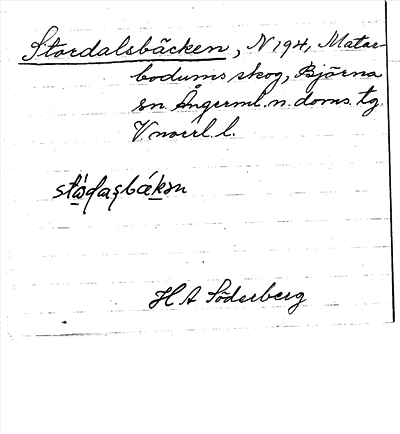 Stordalsbäcken, N 194, Matar-
bodums skog, Björna
sn. Ångerml. n. doms. tg.
V norrl. l.
H A Söderberg